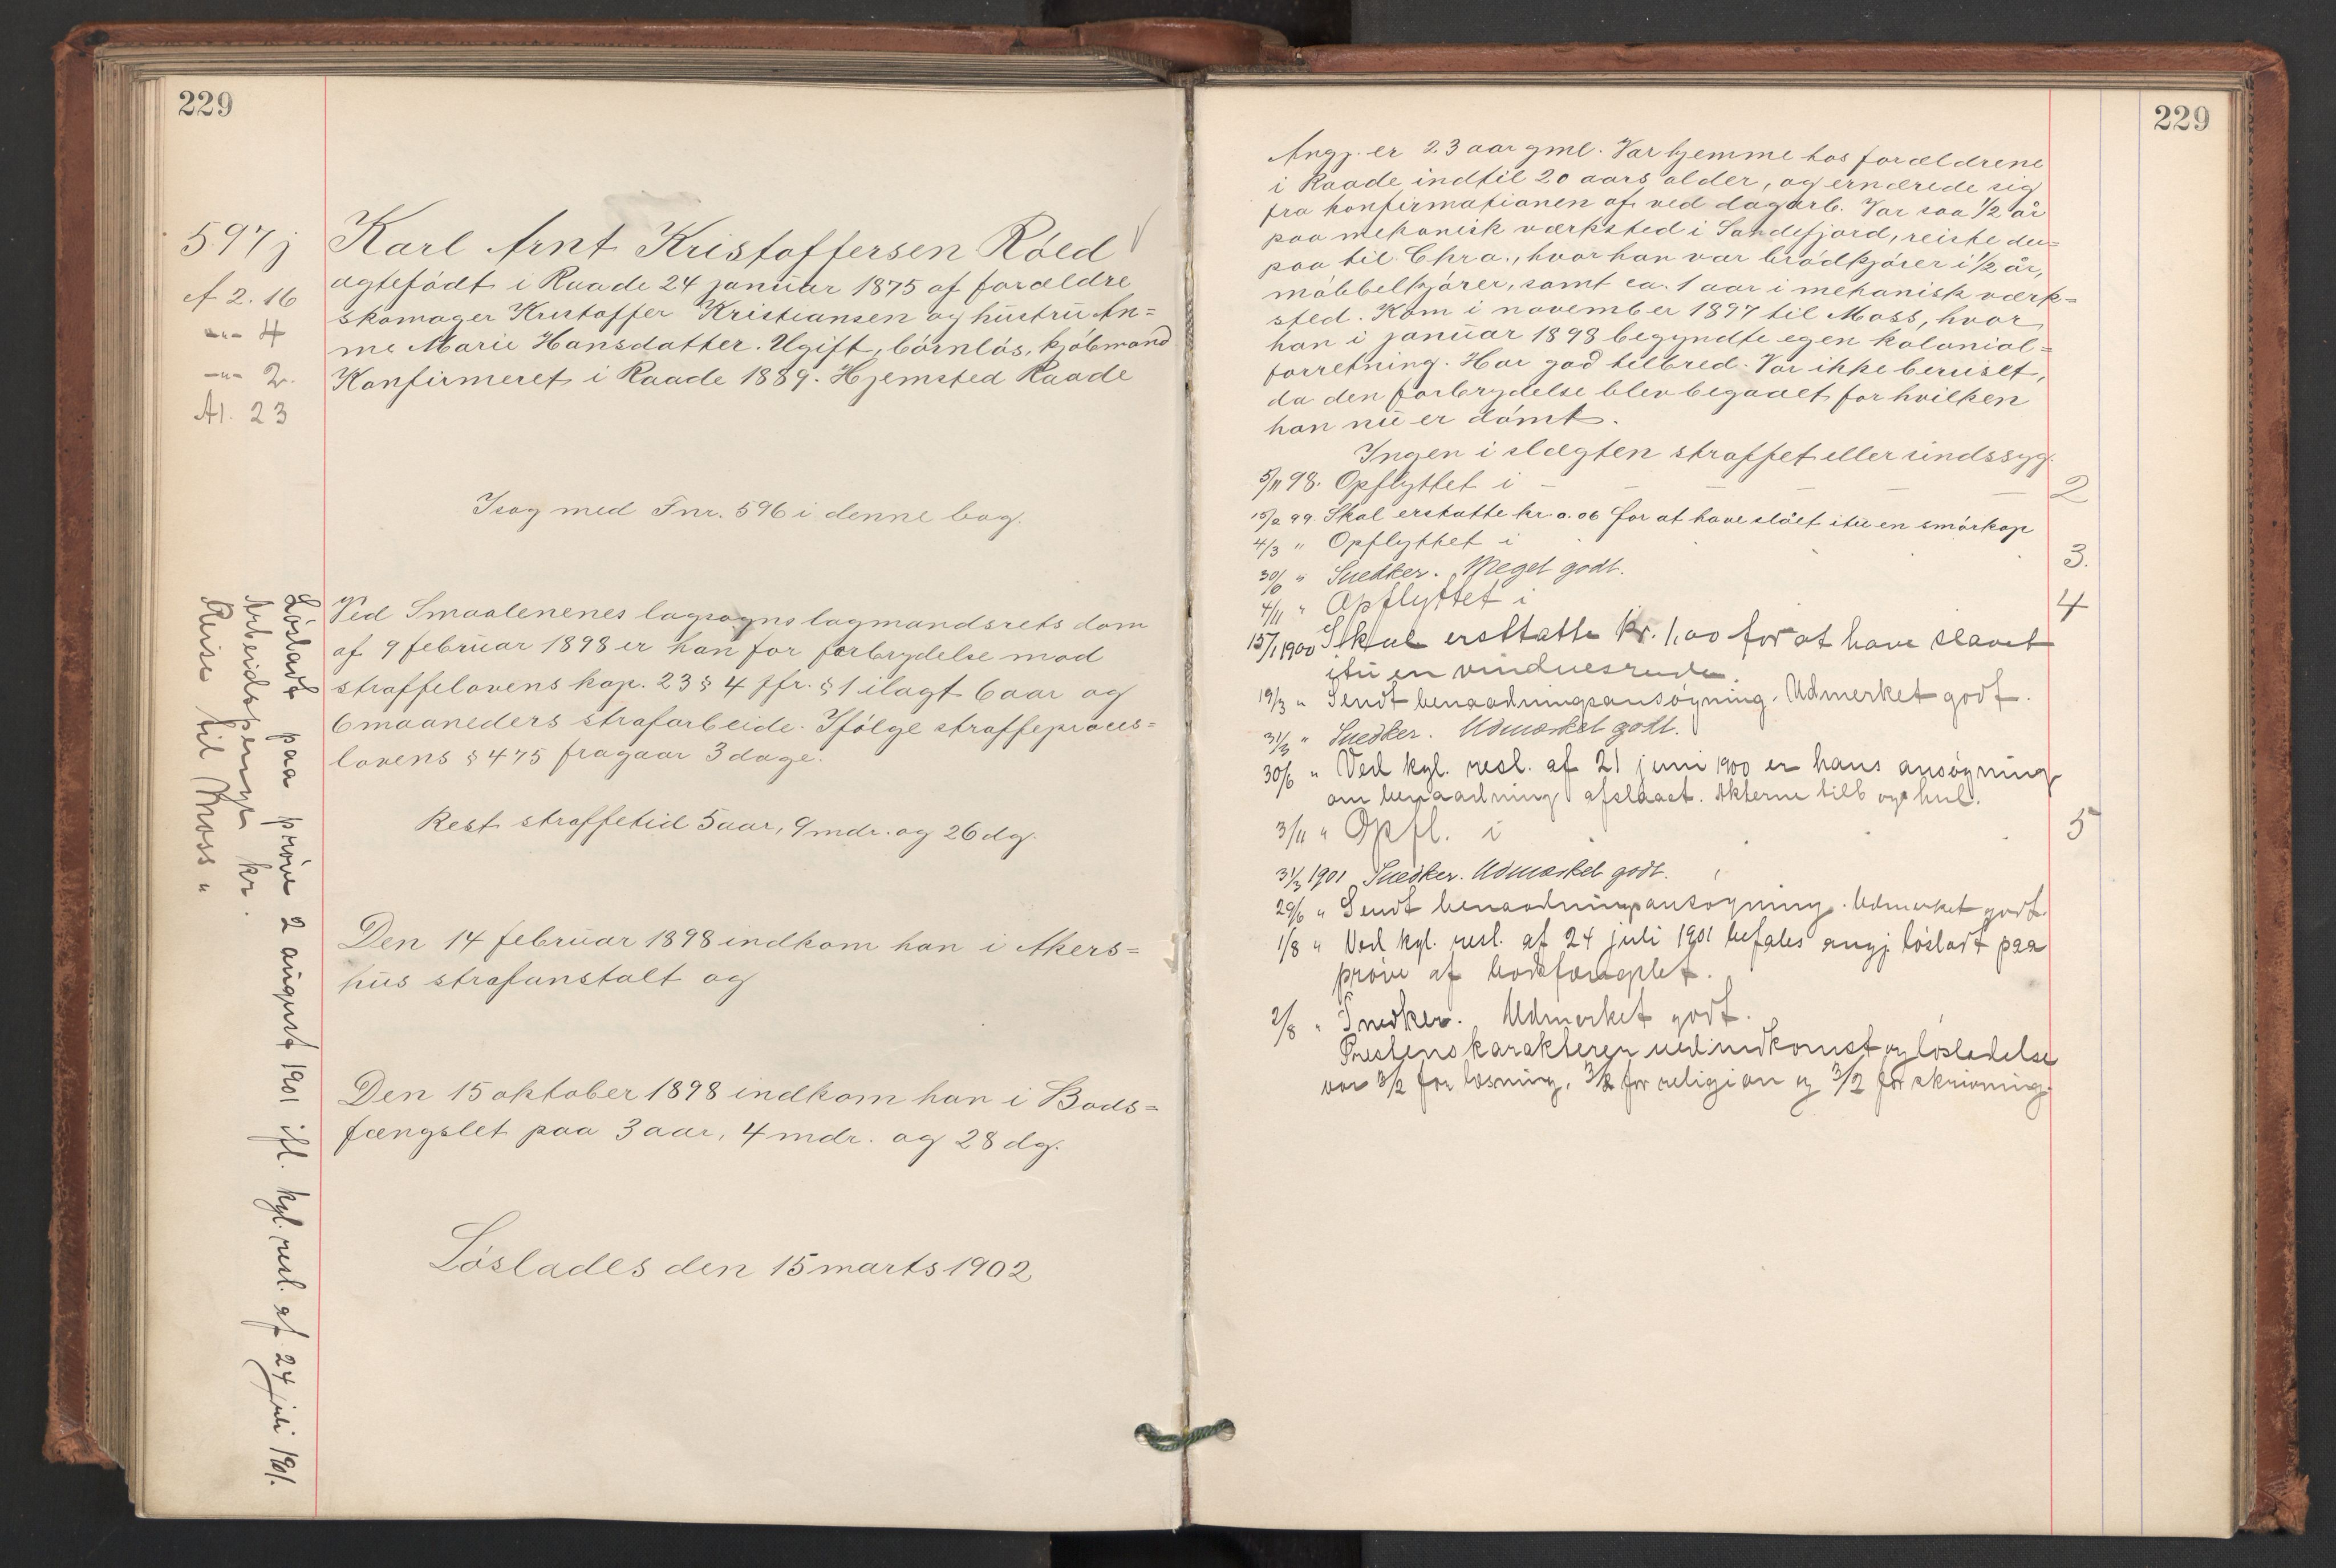 229
597j
A 2. 16
-"- 4
-"- 2.
A1. 23
Karl Arnt Kristoffersen Röed
ægtefödt i Raade 24 januar 1875 af forældre
skomager Kristoffer Kristiansen og hustru An=
ne Marie Hansdatter. Ugift, börnlös, kjöbmand
Konfirmeret i Raade 1889. Hjemsted Raade
Isag med Fnr. 596 i denne bog.
Ved Smaalenenes lagsogns lagmandsrets dom
af 9 februar 1898 er han for forbrydelse mod
straffelovens kap. 23 § 4 jfr. § 1 ilagt 6 aar og
6 maaneders strafarbeide. Ifölge straffeproces=
lovens § 475 fragaar 3 dage.
Rest straffetid 5 aar, 9 mdr. og 26 dg.
Den 14 februar 1898 indkom han i Akers=
hus strafanstalt og
Den 15 oktober 1898 indkom han i Bods=
fængslet paa 3 aar, 4 mdr. og 28 dg.
Löslades den 15 marts 1902
Lösladt paa pröve 2 august 1901 ifl. kgl. resl. af 24 juli 1901.
Arbeidspenge kr.
Reise til Moss "
229
Angj. er 23 aar gml. Var hjemme hos forældrene
i Raade indtil 20 aars alder, og ernærede sig
fra konfirmationen af ved dagarb. Var saa 1/2 år
paa mekanisk værksted i Sandefjord, reiste der=
paa til Chra., hvor han var brödkjörer i 1/2 år,
möbbelkjörer, samt ca. 1 aar i mekanisk værk=
sted. Kom i november 1897 til Moss, hvor
han i januar 1898 begyndte egen kolonial=
forretning. Har god helbred. Var ikke beruset,
da den forbrydelse blev begaaet for hvilken
han nu er dömt.
Ingen i slægten straffet eller sindssyg.
5/11 98. Opflyttet i — — — — 2
15/2 99. Skal erstatte kr. 0.06 for at have slået itu en smörkop
4/3 " Opflyttet i 3.
30/6 " Snedker. Meget godt.
4/11 " Opflyttet i 4
15/1 1900 Skal ersttatte kr. 1,00 for at have slaaet
itu en vinduesrude.
19/3 " Sendt benaadningsansögning. Udmerket godt.
31/3 " Snedker. Udmærket godt.
30/6 " Ved kgl. resl. af 21 juni 1900 er hans ansögning
om benaadning afslaaet. Akterne tilb og hul.
3/11 " Opfl. i 5
31/3 1901 Snedker. Udmærket godt.
29/6 " Sendt benaadningsansögning. Udmerket godt.
1/8 " Ved kgl. resl. af 24 juli 1901 befales angj lösladt paa
pröve af bodsfængslet.
2/8 " Snedker. Udmerket godt.
Prestens karakterer ved indkomst og lösladelse
var 3/2 for læsning, 3/2 for religion og 3/2 for skrivning.